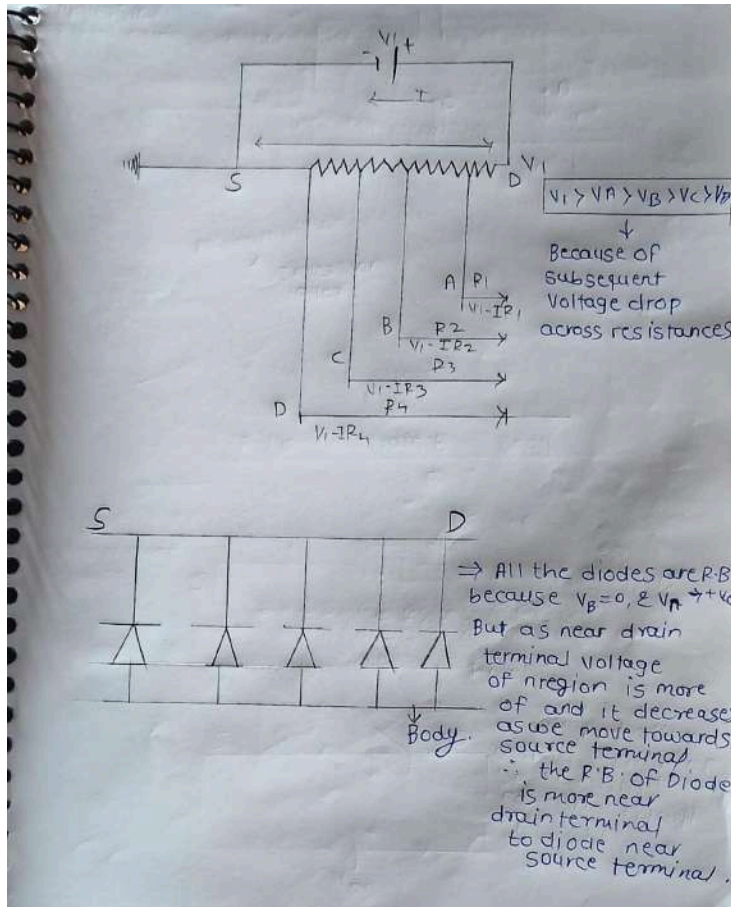 V1
- +
I
S D V1
V1 > VA > VB > VC > VD
Because of
subsequent
Voltage drop
across resistances
A R1
V1-IR1
B R2
V1-IR2
C R3
V1-IR3
D R4
V1-IR4
S D
⇒ All the diodes are R.B
because VB=0, & VA → +ve
But as near drain
terminal voltage
of nregion is more
of and it decreases
as we move towards
source terminal
∴ the R.B. of Diode
is more near
drain terminal
to diode near
source terminal.
Body.